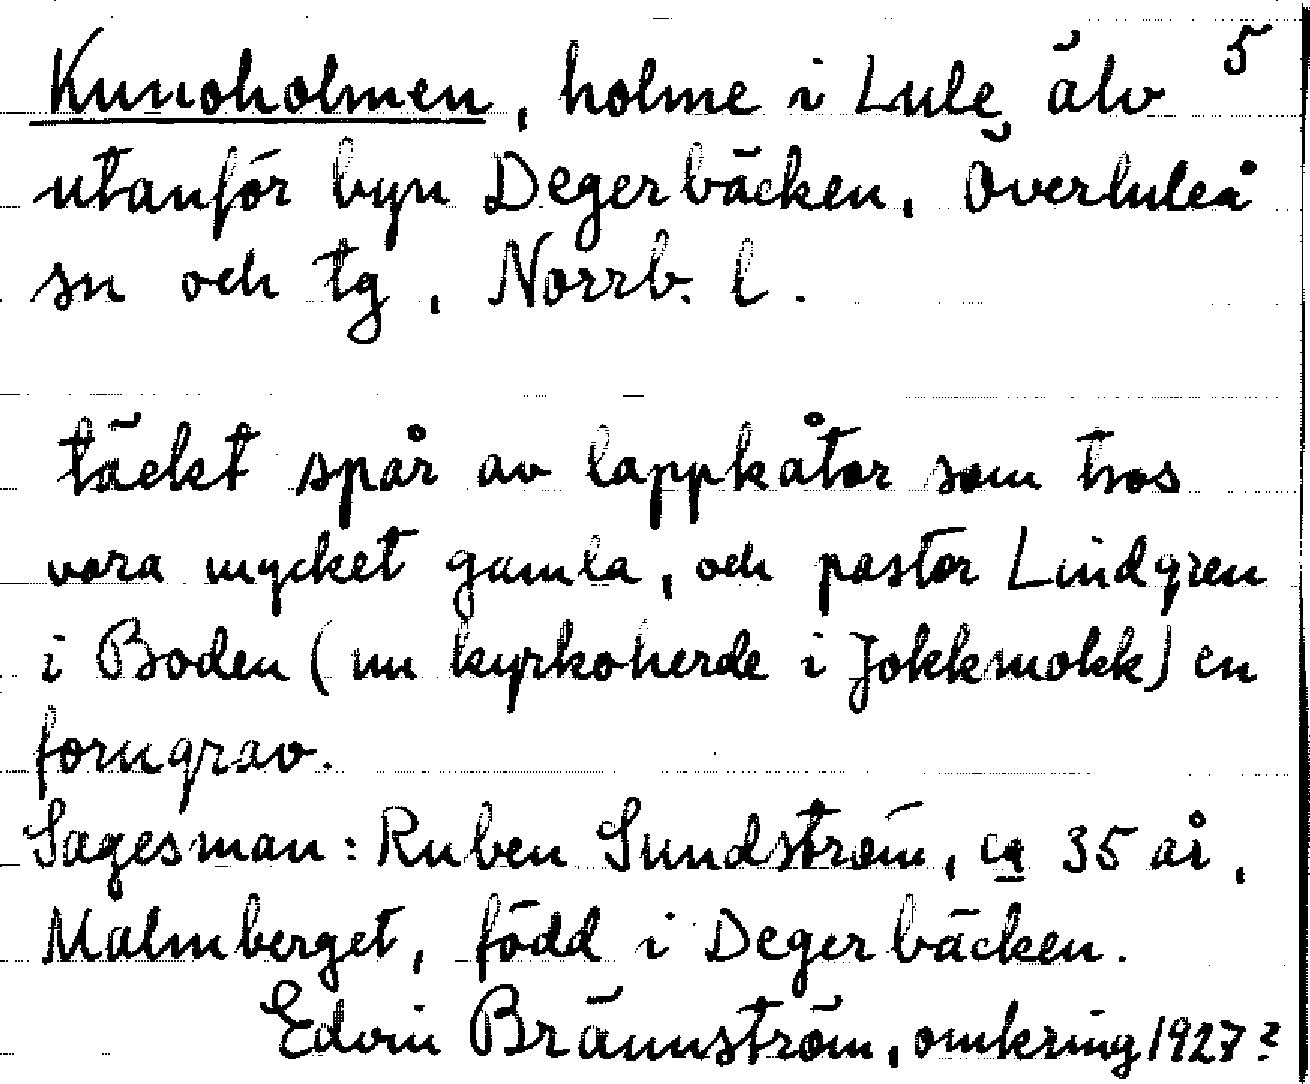 Kunoholmen, holme i Lule älv 5
utanför byn Degerbäcken, Överluleå
sn och tg, Norrb. l.
täckt spår av lappkåtor som tros
vara mycket gamla, och pastor Lindgren
i Boden (nu kyrkoherde i Jokkmokk) en
forngrav.
Sagesman: Ruben Sundström, ca 35 år,
Malmberget, född i Degerbäcken.
Edvin Brännström, omkring 1927?